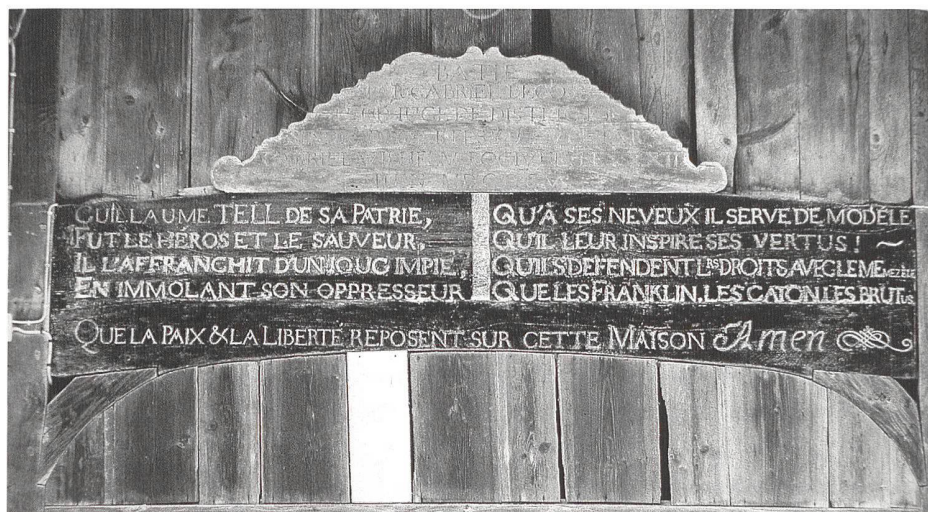 BATIE
GABRIEL
GUILLAUME TELL DE SA PATRIE,
FUT LE HÉROS ET LE SAUVEUR,
IL L'AFFRANCHIT D'UN JOUG IMPIE,
EN IMMOLANT SON OPPRESSEUR
QU'À SES NEVEUX IL SERVE DE MODÈLE
QU'IL LEUR INSPIRE SES VERTUS! ~
QU'ILS DÉFENDENT LRS DROITS AVEC LE MEME ZÈLE
QUE LES FRANKLIN, LES CATON LES BRUTUS.
QUE LA PAIX & LA LIBERTÉ REPOSENT SUR CETTE MAISON Amen